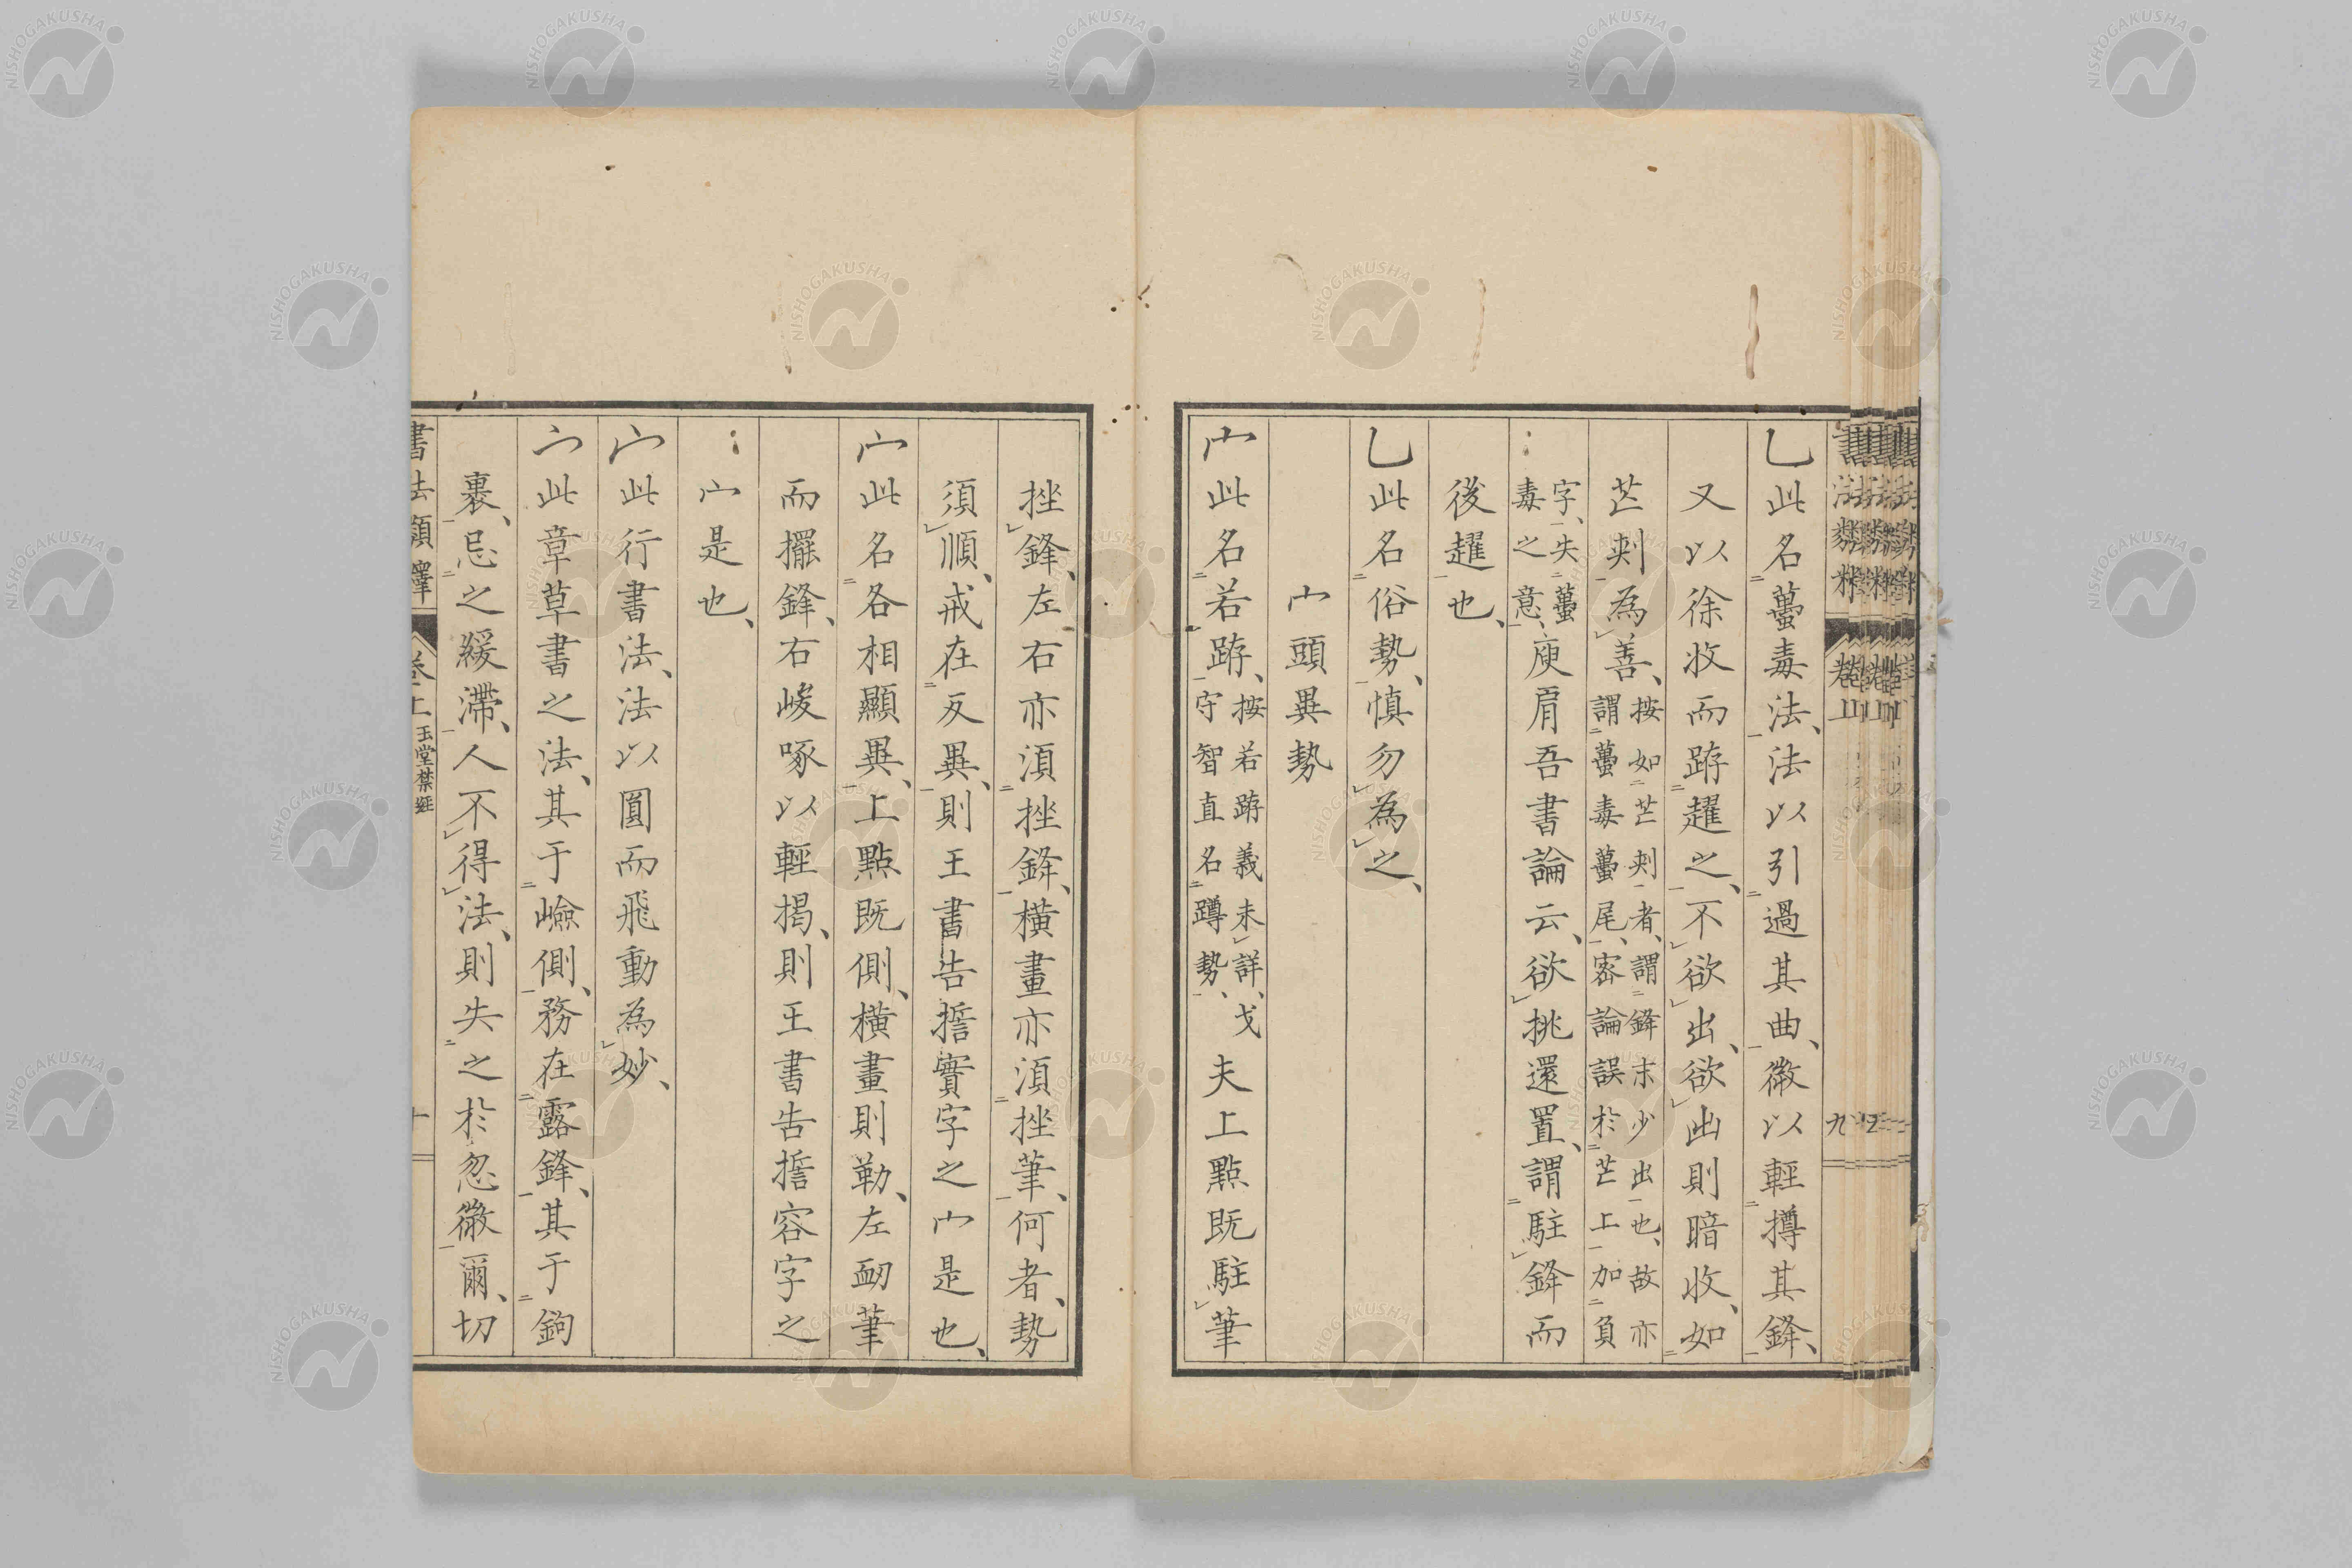 乚此名蠆毒法、法以引過其曲、徽以輕撙其鋒、
又以徐收而跡趯之、不欲出、欲出則暗收、如
芒刺為善、按如芒刺者、謂鋒末少出也、故亦
謂蠆毒蠆尾、密論誤於芒上加負
字、失蠆
毒之意、庾肩吾書論云、欲挑還置、謂駐鋒而
後趯也、
乚此名俗勢、慎勿為之、
宀頭異勢
宀此名若跡、按若跡義未詳、戈
守智直名蹲勢、夫上點既駐筆
挫鋒、左右亦須挫鋒、橫畫亦須挫筆、何者、勢
須順、戒在反異、則王書告誓實字之宀是也、
宀此名各相顯異、上點既側、橫畫則勒、左衂筆
而擺鋒、右峻啄以輕揭、則王書告誓容字之
宀是也、
宀此行書法、法以圓而飛動為妙、
亠此章草書之法、其于嶮側、務在露鋒、其于鉤
裹、忌之緩滯、人不得法、則失之於忽徽爾、切
書法類釋 卷上 玉堂禁經 十
九
NISHOGAKUSHA